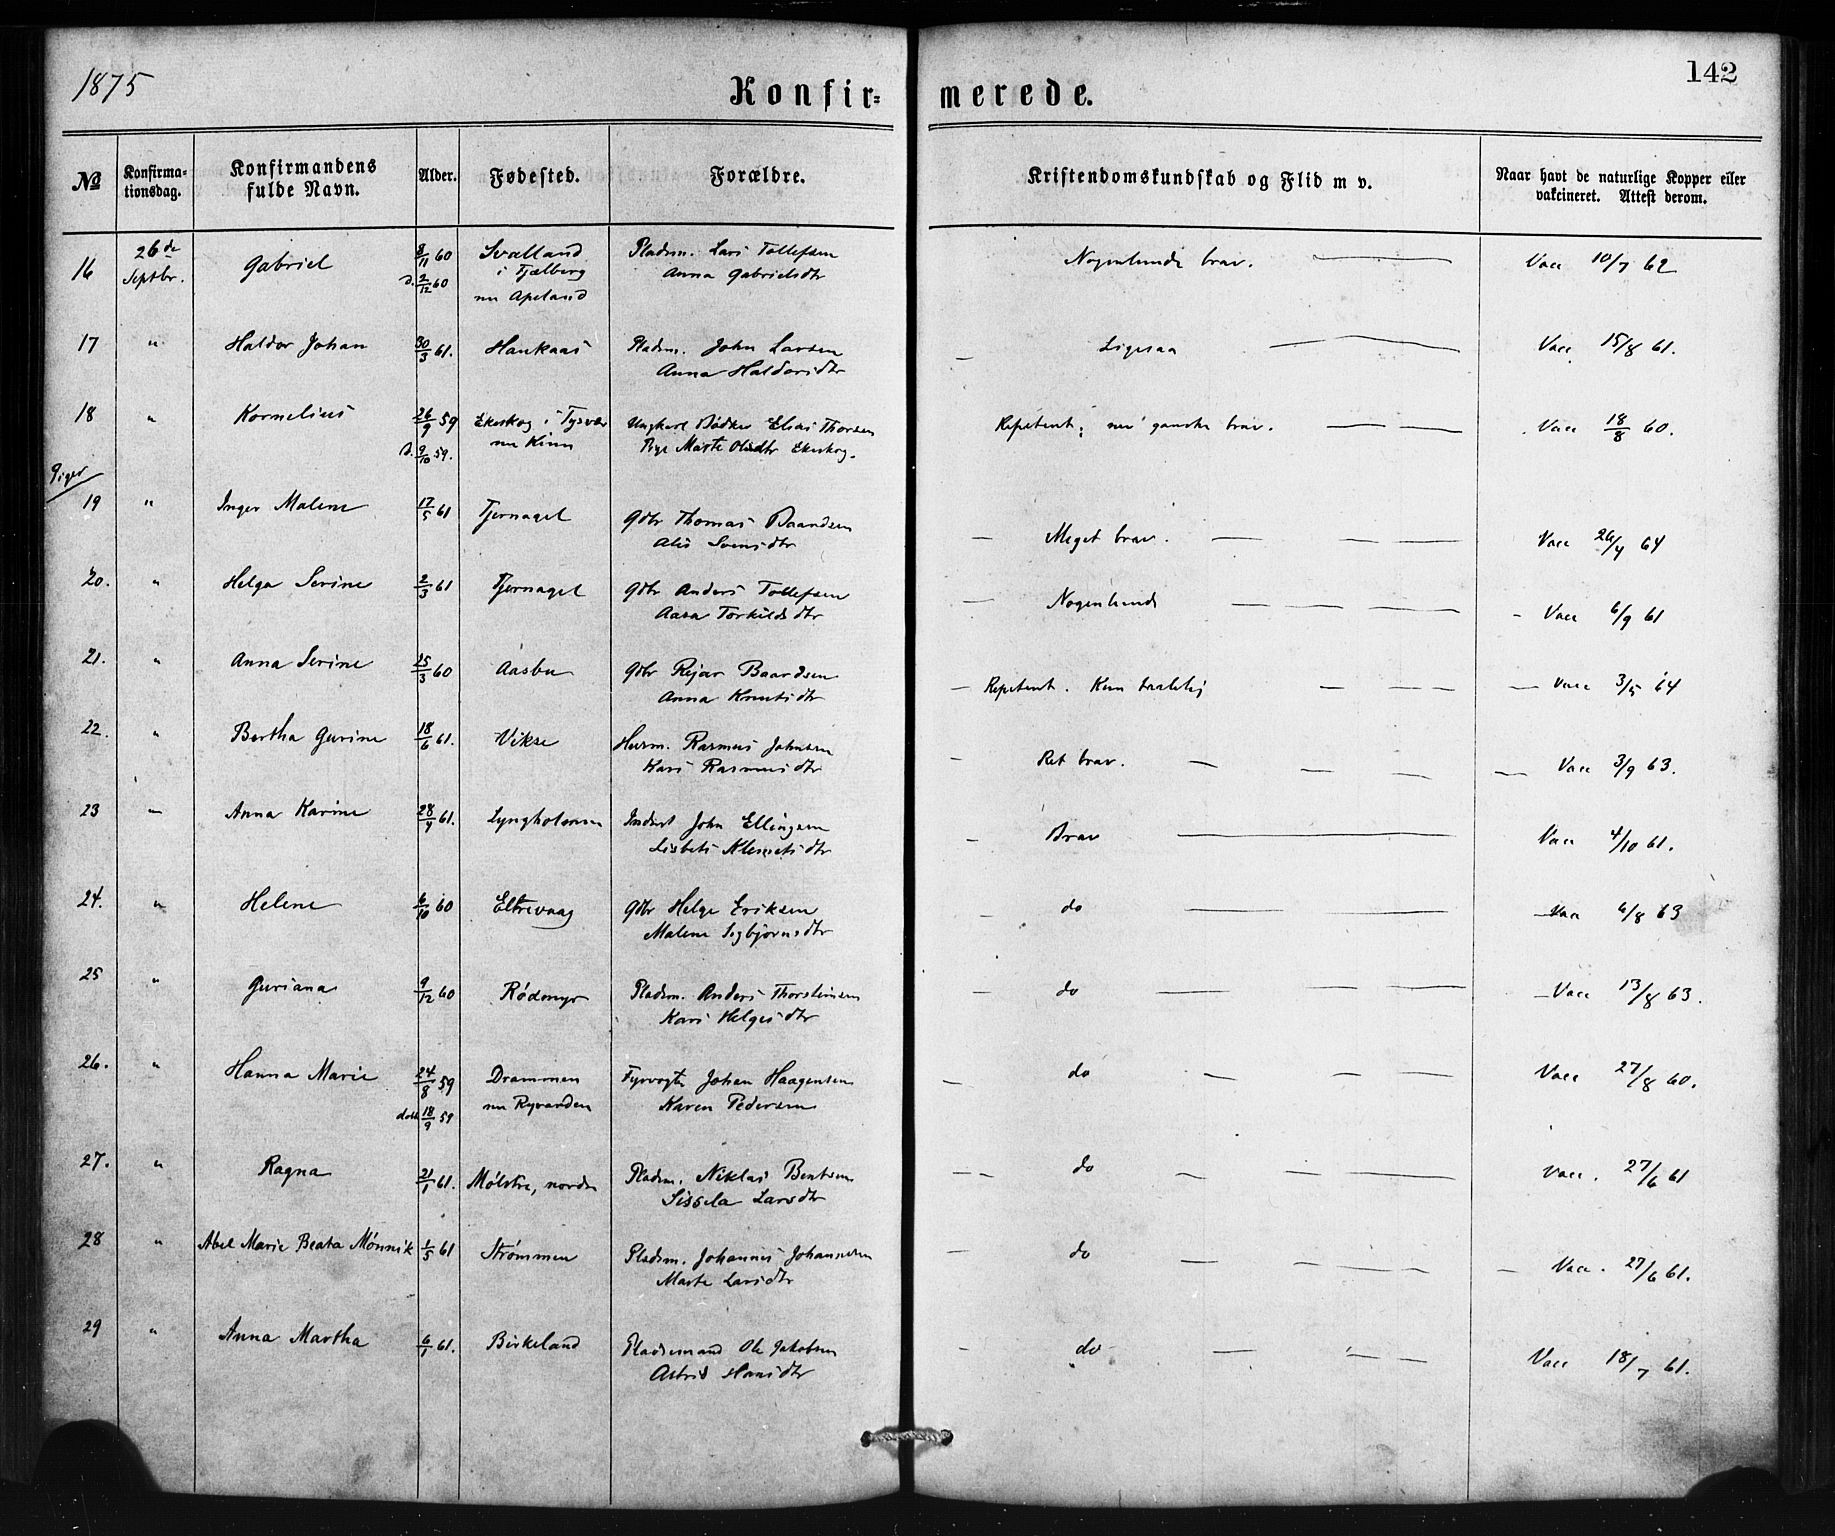 1875
Konfir= merede.
142
№ Konfirma- tionsdag. Konfirmandens fulde Navn. Alder. Fødested. Forældre. Kristendomskundskab og Flid m v. Naar havt de naturlige Kopper eller vakcineret. Attest derom.
16 26de Septbr. Gabriel 8/11 60 d. 2/12 60 Svalland i Fjælberg nu Apeland Pladsm. Lars Tollefsen Anna Gabrielsdtr Nogenlunde brav. Vacc 10/7 62
17 " Haldor Johan 30/3 61. Haukaas Pladsm. John Larsen Anna Haldorsdtr — Ligesaa Vacc 15/8 61.
18 " Kornelius 26/9 59 D. 9/10 59. Ekeskog i Tysvær nu Kinn Ungkarl Bødker Elias Thorsen Pige Marte Olsdtr Ekeskog. Repetent; nu ganske brav. Vacc 18/8 60.
Piger
19 " Inger Malene 17/5 61 Tjernagel Gdbr Thomas Baardsen Alis Svensdtr — Meget brav. Vacc 26/4 64
20. " Helga Serine 2/3 61 Tjernagel Gdbr Anders Tollefsen Aasa Torkildsdtr — Nogenlunde — Vacc 6/9 61
21. " Anna Serine 25/3 60 Aasbu Gdbr Rejar Baardsen Anna Knutsdtr — Repetent. Kun taalelig — Vacc 3/5 64
22. " Bertha Gurine 18/6 61. Vikse Husm. Rasmus Johnsen Kari Rasmusdtr — Ret brav. — Vacc 3/9 63.
23 — Anna Karine 28/4 61. Lyngholmen Inderst John Ellingsen Lisbets Klemetsdtr — Brav Vacc 4/10 61.
24. " Helene 6/10 60 Eltrevaag Gdbr Helge Eriksen Malene Sigbjørnsdtr — do — Vacc 6/8 63
25 " Guriana 9/12 60 Rødmyr Pladsm. Anders Thorsteinsen Kari Helgesdtr — do — Vacc 13/8 63.
26. " Hanna Marie 24/8 59 døbt 18/9 59 Drammen nu Ryvarden Fyrvogter Johan Haagensen Karen Pedersen — do Vacc 27/8 60.
27. " Ragna 21/1 61. Mølstre, nordre Pladsm. Niklas Bentsen Sissela Larsdtr — do Vacc. 27/6 61
28 " Abel Marie Beata Mønnik 1/5 61 Strømmen Pladsm. Johannes Johannesen Marte Larsdtr — do — Vacc. 27/6 61.
29 " Anna Martha 6/1 61. Birkeland Pladsemand Ole Jakobsen Astrid Hansdtr — do Vacc 18/7 61.